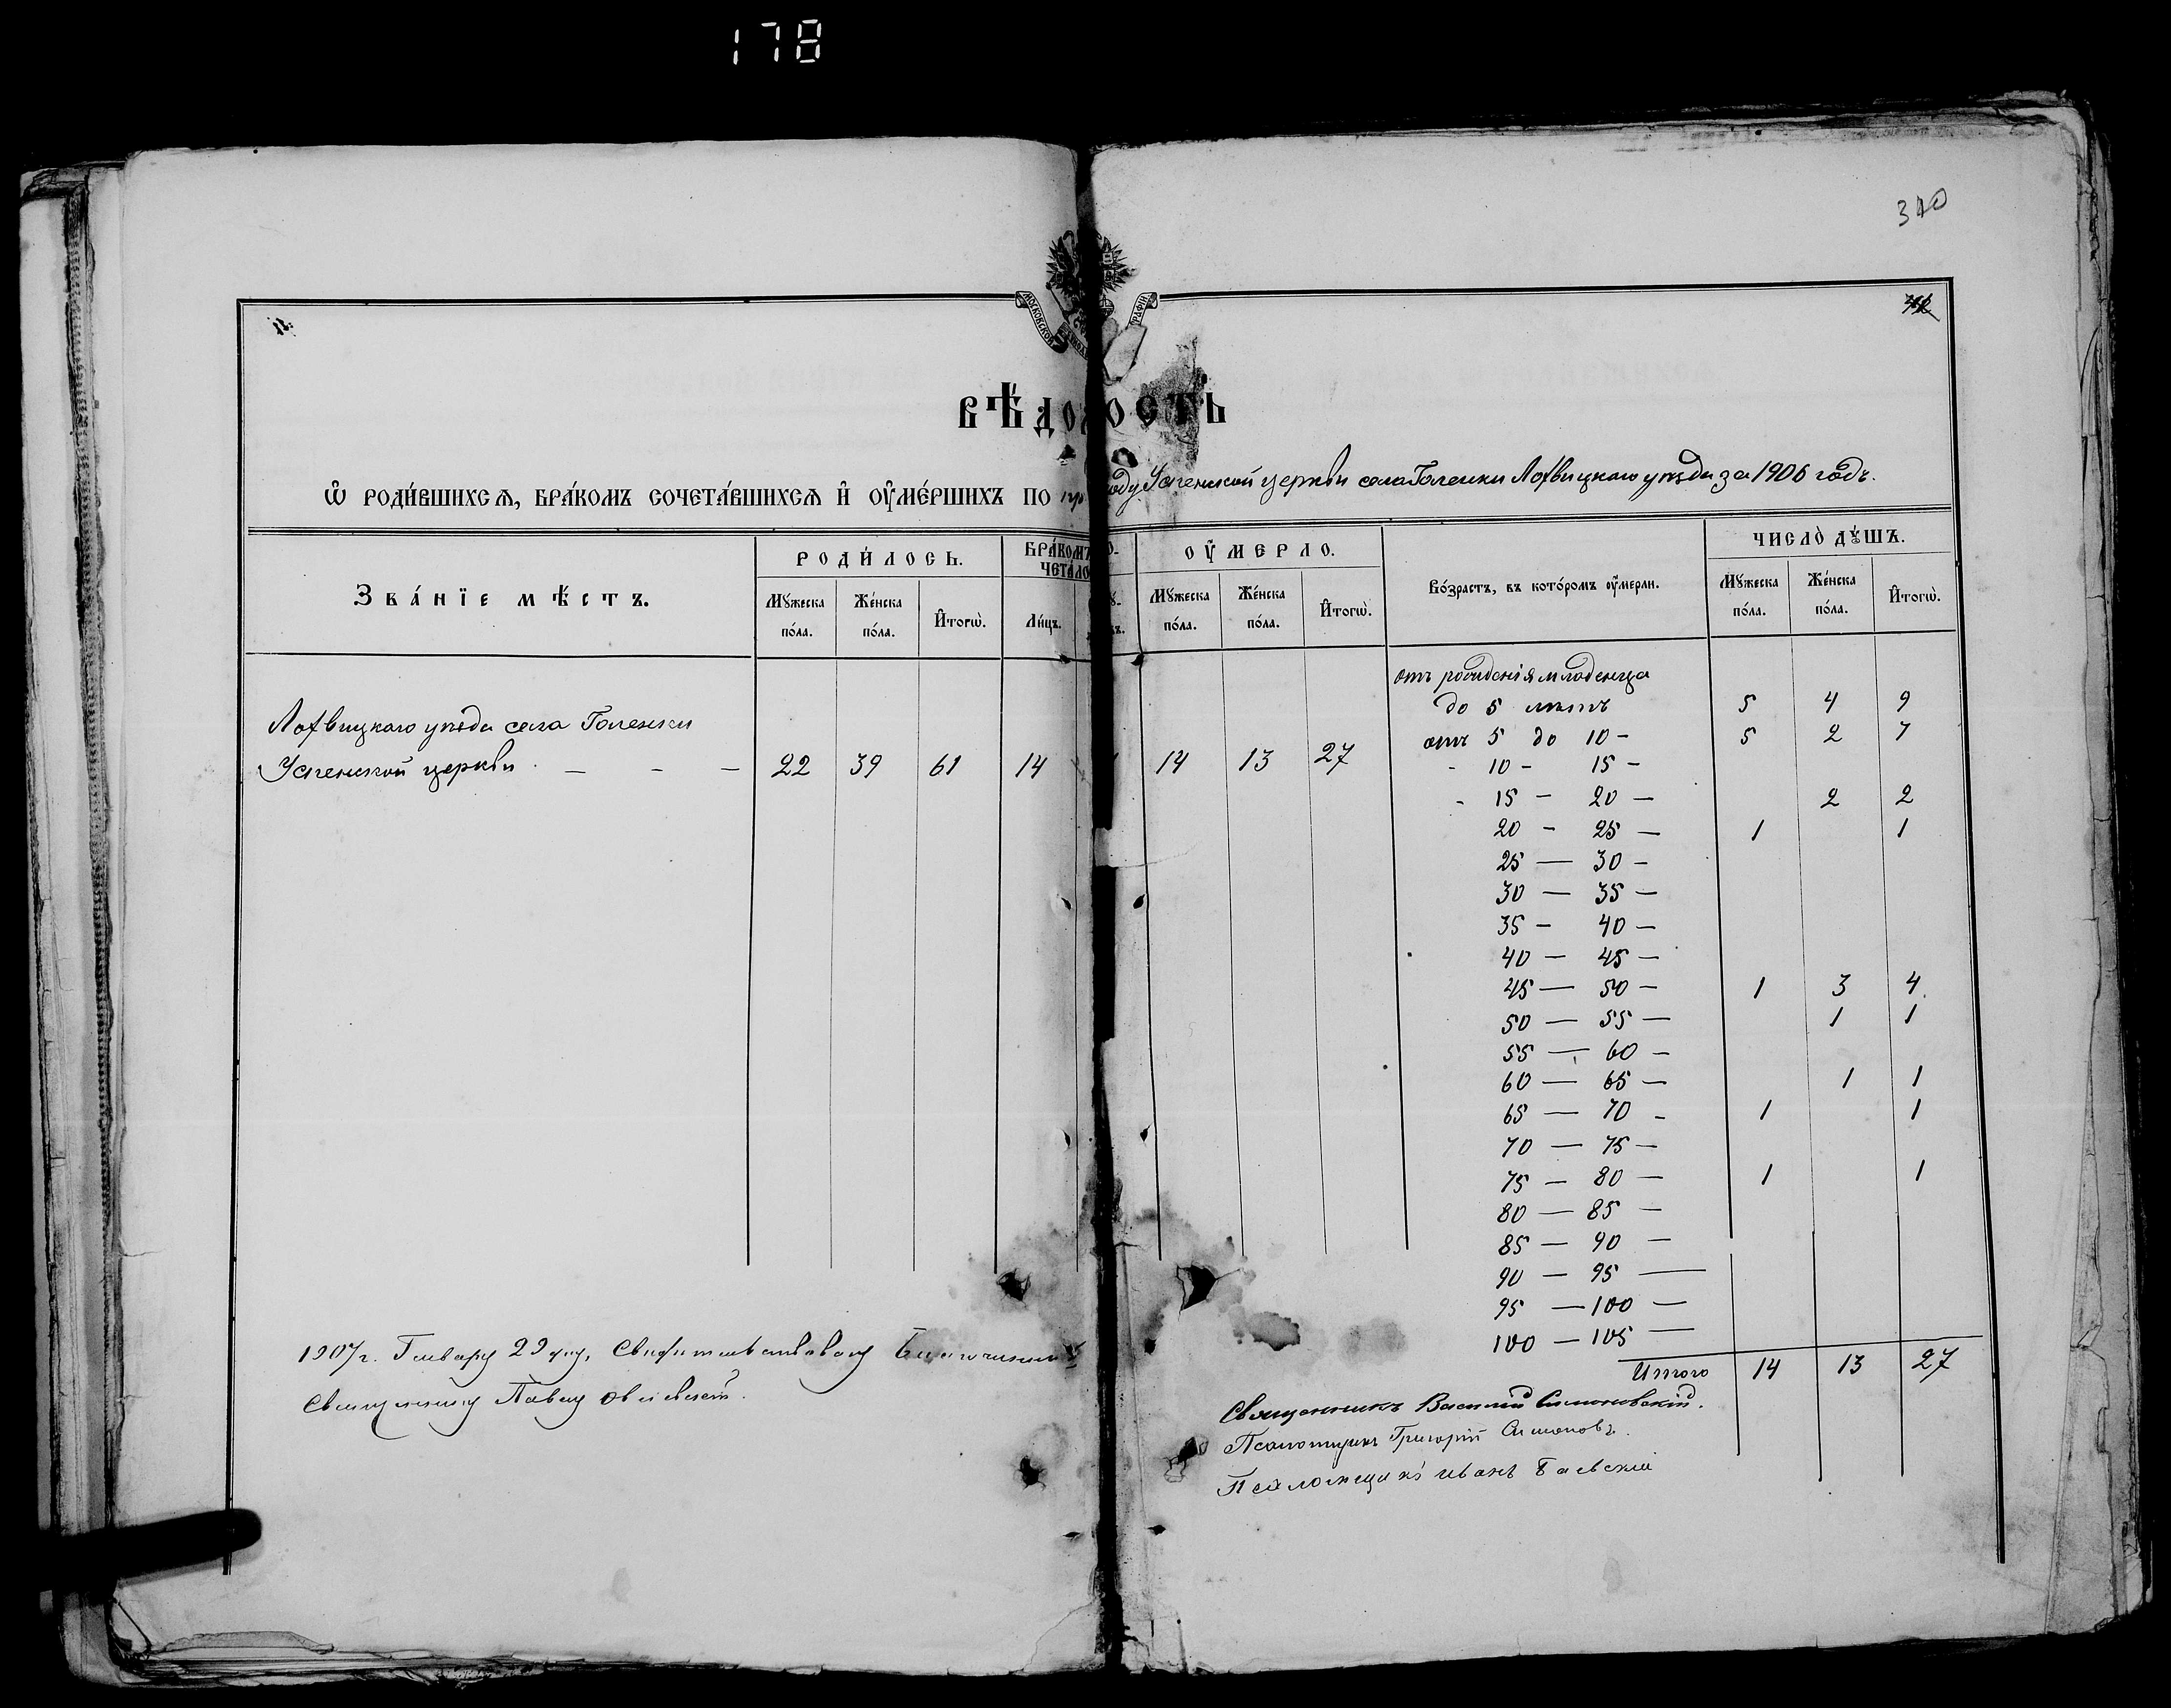 178
310
ВѢДОМОСТЬ
Ѡ РОДИ́ВШИХСѦ, БРА́КОМЪ СОЧЕТА́ВШИХСѦ И҆ ОУ҆МЕ́РШИХЪ ПО приходу Успенской церкви села Голенки Лохвицкаго уѣзда за 1906 годъ.
Зва́нїе мѣ́стъ.
РОДИ́ЛОСЬ.
Мꙋжеска по́ла.
Же́нска по́ла.
И҆тогѡ̀.
БРА́КОМЪ СО-
ЧЕТА́ЛО
Ли́цъ.
ОУ҆МЕРЛО.
Мꙋжеска по́ла.
Же́нска по́ла.
И҆тогѡ̀.
Во́зрастъ, въ кото́ромъ оу҆мерли.
ЧИСЛО̀ ДꙊШЪ.
Мꙋжеска по́ла.
Же́нска по́ла.
И҆тогѡ̀.
Лохвицкаго уѣзда села Голенки
Успенской церкви - - - 22 39 61 14 14 13 27
отъ рожденія младенца
до 5 лѣтъ 5 4 9
отъ 5 до 10 - 5 2 7
- 10 - 15 -
- 15 - 20 - 2 2
20 - 25 - 1 1
25 - 30 -
30 - 35 -
35 - 40 -
40 - 45 -
45 - 50 - 1 3 4
50 - 55 - 1 1
55 - 60 -
60 - 65 - 1 1
65 - 70 - 1 1
70 - 75 -
75 - 80 - 1 1
80 - 85 -
85 - 90 -
90 - 95 -
95 - 100 -
100 - 105 -
Итого 14 13 27
1907 г. Января 29 дня, Свидѣтельствовалъ Благочинный
Священникъ Павелъ
Священникъ Василій Симоновскій.
Псаломщикъ Григорій Симоновъ.
Псаломщикъ Иванъ Баевскій